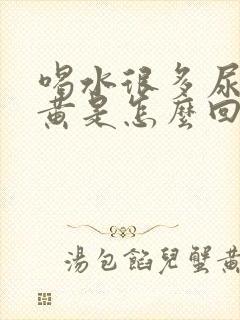 喝水很多尿
黄是怎麼回
湯包餡兒蟹黄